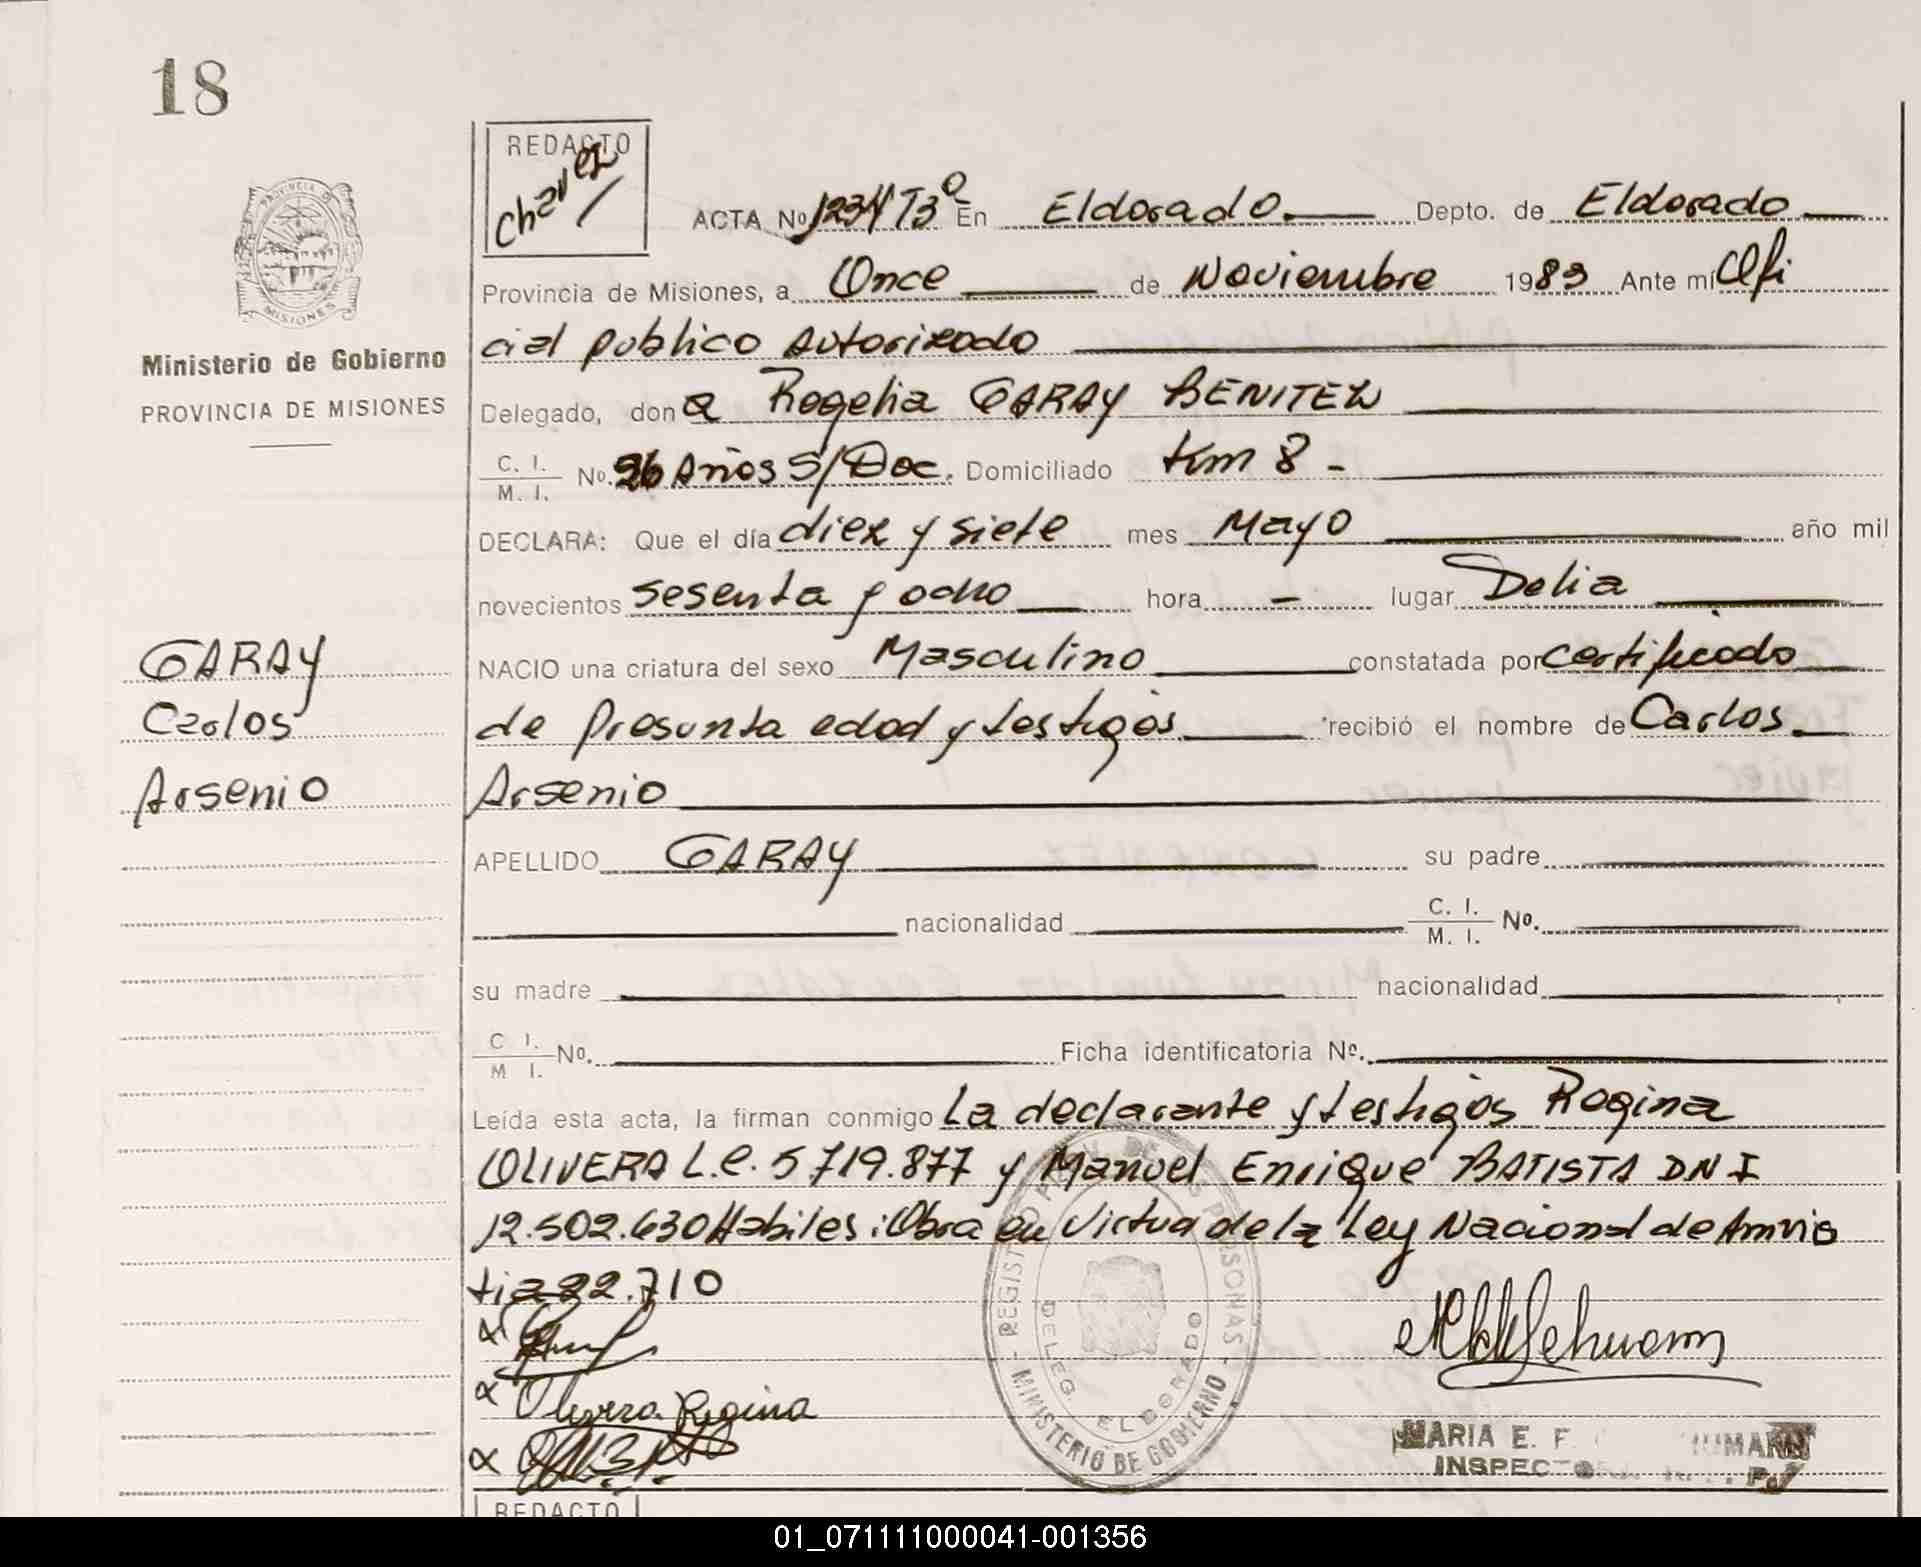 18
REDACTO
Chavez
ACTA No 1234 T3º En Eldorado Depto. de Eldorado
PROVINCIA DE
MISIONES
Provincia de Misiones, a Once de Noviembre 1983 Ante mi Ofi
cial publico autorizado
Ministerio de Gobierno
PROVINCIA DE MISIONES
Delegado, don a Rogelia GARAY BENITEZ
C. I.
M. I. No. 26 Años S/Doc. Domiciliado Km 8 -
DECLARA: Que el día diez y siete mes Mayo año mil
novecientos sesenta y ocho hora - lugar Delia
GARAY
NACIO una criatura del sexo Masculino constatada por certificado
Carlos
de Presunta edad y testigos recibió el nombre de Carlos
Arsenio
Arsenio
APELLIDO GARAY su padre
nacionalidad C. I.
M. I. No.
su madre nacionalidad
C I.
M I. No. Ficha identificatoria No.
Leída esta acta, la firman conmigo La declarante y testigos Regina
OLIVERA L.C. 5719.877 y Manuel Enrique BATISTA DNI
12.502.630 Habiles: Obra en Virtud de la Ley Nacional de Amnis
tia 22.710
Olivera Regina
REGISTRO DE LAS PERSONAS
DELEG. ELDORADO
MINISTERIO DE GOBIERNO
MARIA E. F.
INSPECTORA
REDACTO
01_071111000041-001356